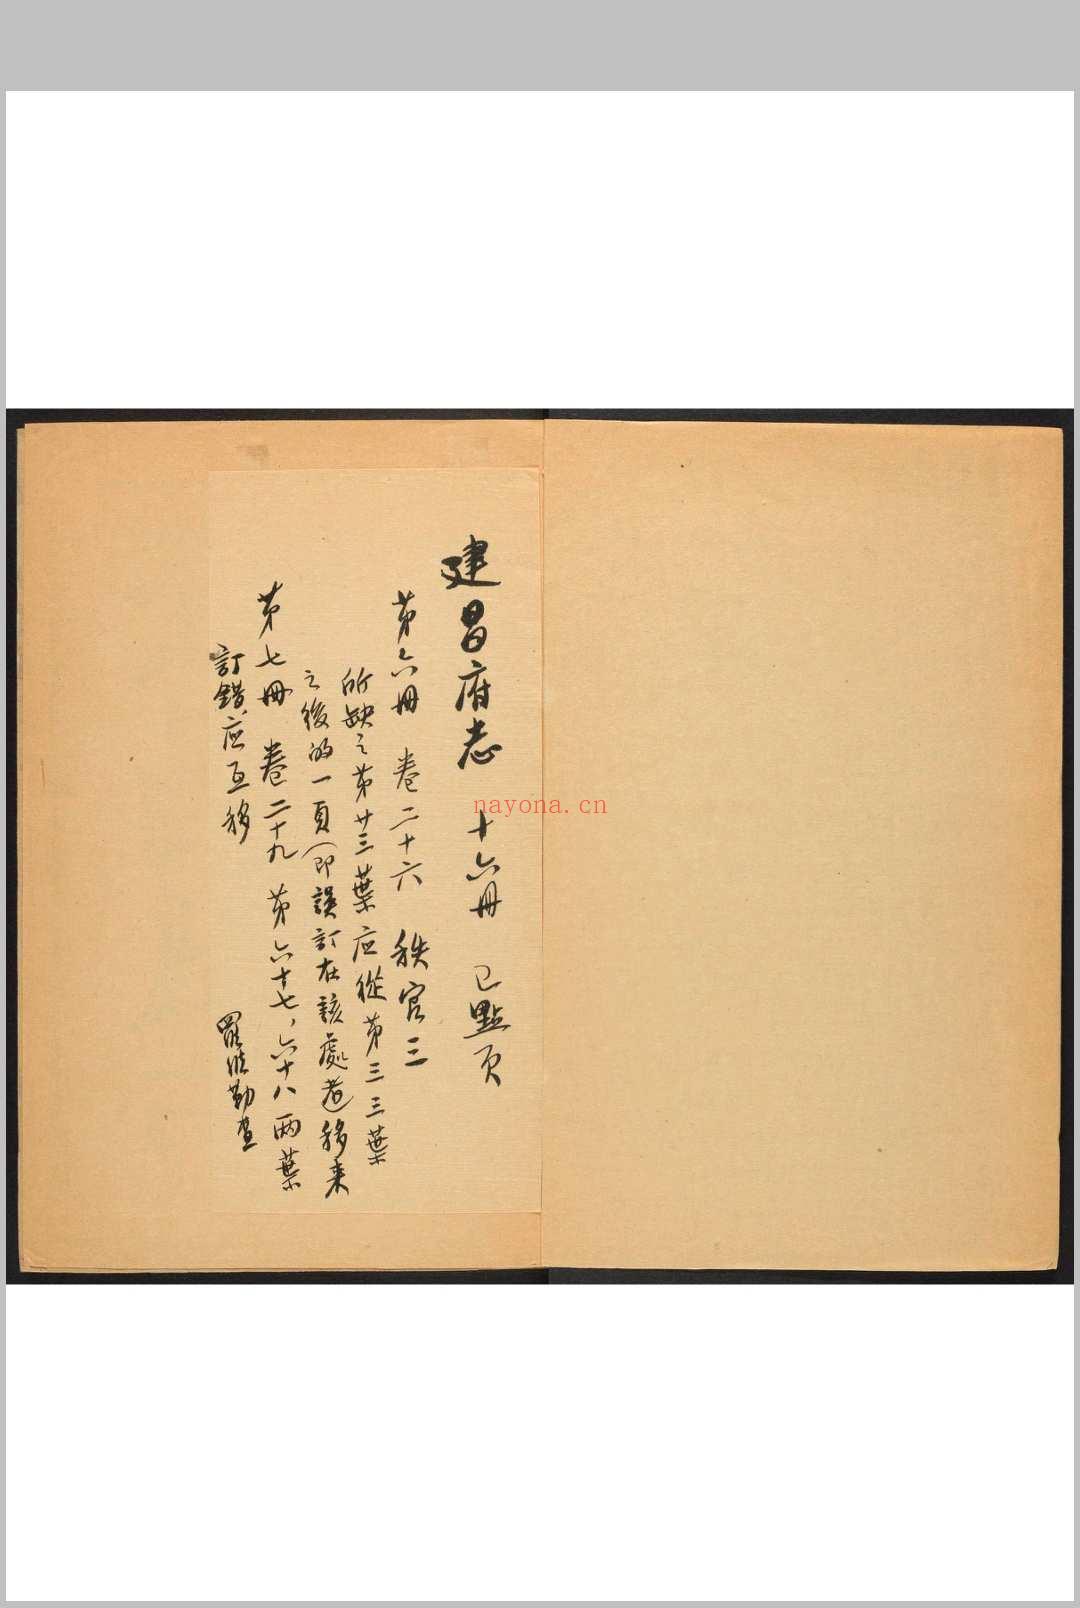 建昌府志 十六冊 已點頁
第六冊 卷二十六 秩官三
所缺之第廿三葉应從第三三葉
之後的一頁（即誤訂在該處者）移来
第七冊 卷二十九 第六十七、六十八兩葉
訂錯，应互移
勤查
nayona.cn